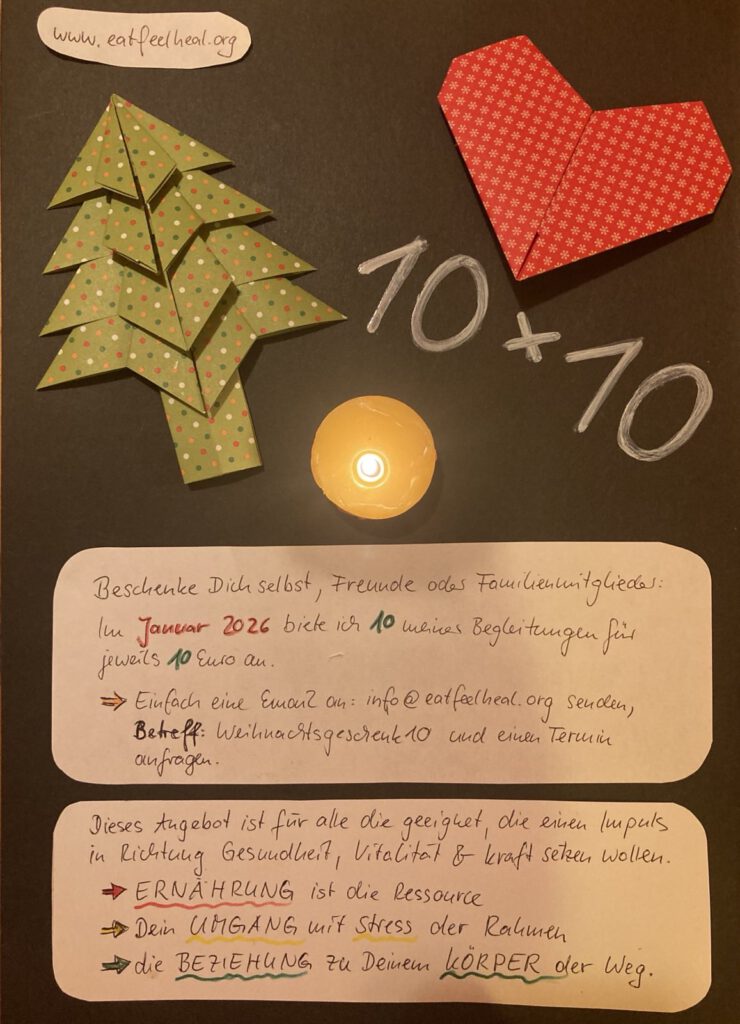 www.eatfeelheal.org
10 + 10
Beschenke Dich selbst, Freunde oder Familienmitglieder:
Im Januar 2026 biete ich 10 meiner Begleitungen für
jeweils 10 Euro an.
→ Einfach eine Email an: info@eatfeelheal.org senden,
Betreff: Weihnachtsgeschenk10 und einen Termin
anfragen.
Dieses Angebot ist für alle die geeignet, die einen Impuls
in Richtung Gesundheit, Vitalität & Kraft setzen wollen.
→ ERNÄHRUNG ist die Ressource
→ Dein UMGANG mit Stress der Rahmen
→ die BEZIEHUNG zu Deinem KÖRPER der Weg.